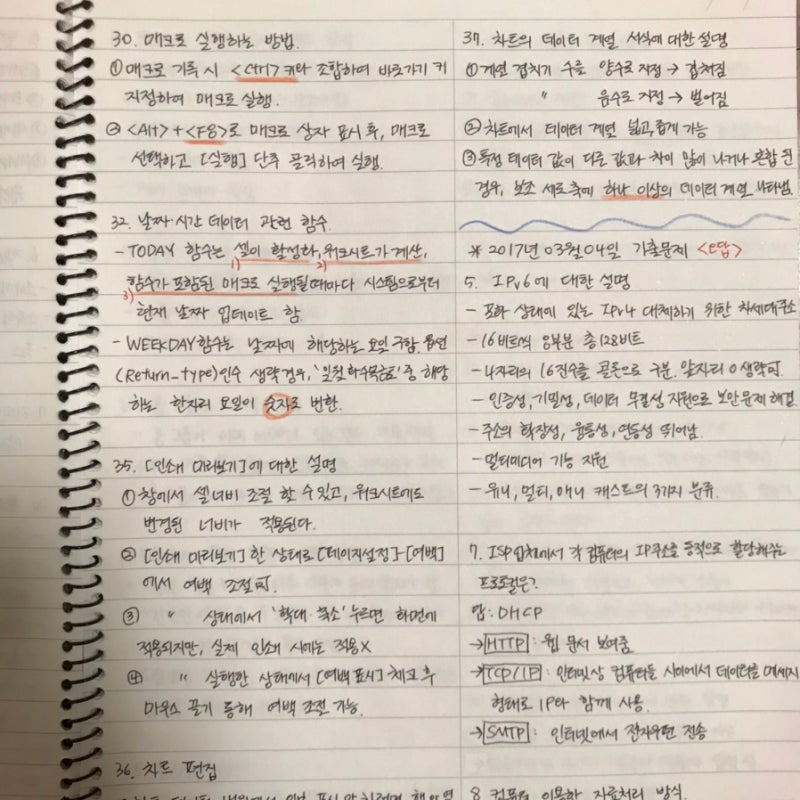 30. 매크로 실행하는 방법.
① 매크로 기록 시 <Ctrl> 키와 조합하여 바로가기 키
지정하여 매크로 실행.
② <Alt> + <F8>로 매크로 상자 표시 후, 매크로
선택하고 [실행] 단추 클릭하여 실행.
32. 날짜·시간 데이터 관련 함수.
- TODAY 함수는 셀이 활성화, 워크시트가 계산,
1) 2)
함수가 포함된 매크로 실행될때마다 시스템으로부터
3)
현재 날짜 업데이트 함.
- WEEKDAY 함수는 날짜에 해당하는 요일 구함. 옵션
(Return_type)인수 생략경우, '일월화수목금토' 중 해당
하는 한자리 요일이 숫자로 변환.
35. [인쇄 미리보기]에 대한 설명
① 창에서 셀너비 조절 할 수 있고, 워크시트에도
변경된 너비가 적용된다.
② [인쇄 미리보기] 한 상태로 [페이지설정]-[여백]
에서 여백 조절 可.
③ 〃 상태에서 '확대·축소' 누르면 화면에
적용되지만, 실제 인쇄 시에는 적용 X
④ 〃 실행한 상태에서 [여백 표시] 체크 후
마우스 끌기 통해 여백 조절 가능.
36. 차트 편집
37. 차트의 데이터 계열 서식에 대한 설명
① 계열 겹치기 수를 양수로 지정 → 겹쳐짐
〃 음수로 지정 → 벌어짐
② 차트에서 데이터 계열 넓고, 좁게 가능
③ 특정 데이터 값이 다른 값과 차이 많이 나거나 혼합 된
경우, 보조 세로 축에 하나 이상의 데이터 계열 나타냄.
* 2017년 03월 04일 기출문제 <오답>
5. IPv6에 대한 설명
- 포화 상태에 있는 IPv4 대체하기 위한 차세대주소
- 16비트씩 8부분 총 128비트
- 4자리의 16진수를 콜론으로 구분. 앞자리 0 생략可.
- 인증성, 기밀성, 데이터 무결성 지원으로 보안문제 해결.
- 주소의 확장성, 융통성, 연동성 뛰어남.
- 멀티미디어 기능 지원
- 유니, 멀티, 애니 캐스트의 3가지 분류.
7. ISP업체에서 각 컴퓨터의 IP주소를 동적으로 할당해주는
프로토콜은?
답 : DHCP
→ HTTP : 웹 문서 보여줌
→ TCP/IP : 인터넷상 컴퓨터들 사이에서 데이터를 메세지
형태로 IP와 함께 사용.
→ SMTP : 인터넷에서 전자우편 전송
8. 컴퓨터 이용한 자료처리 방식.